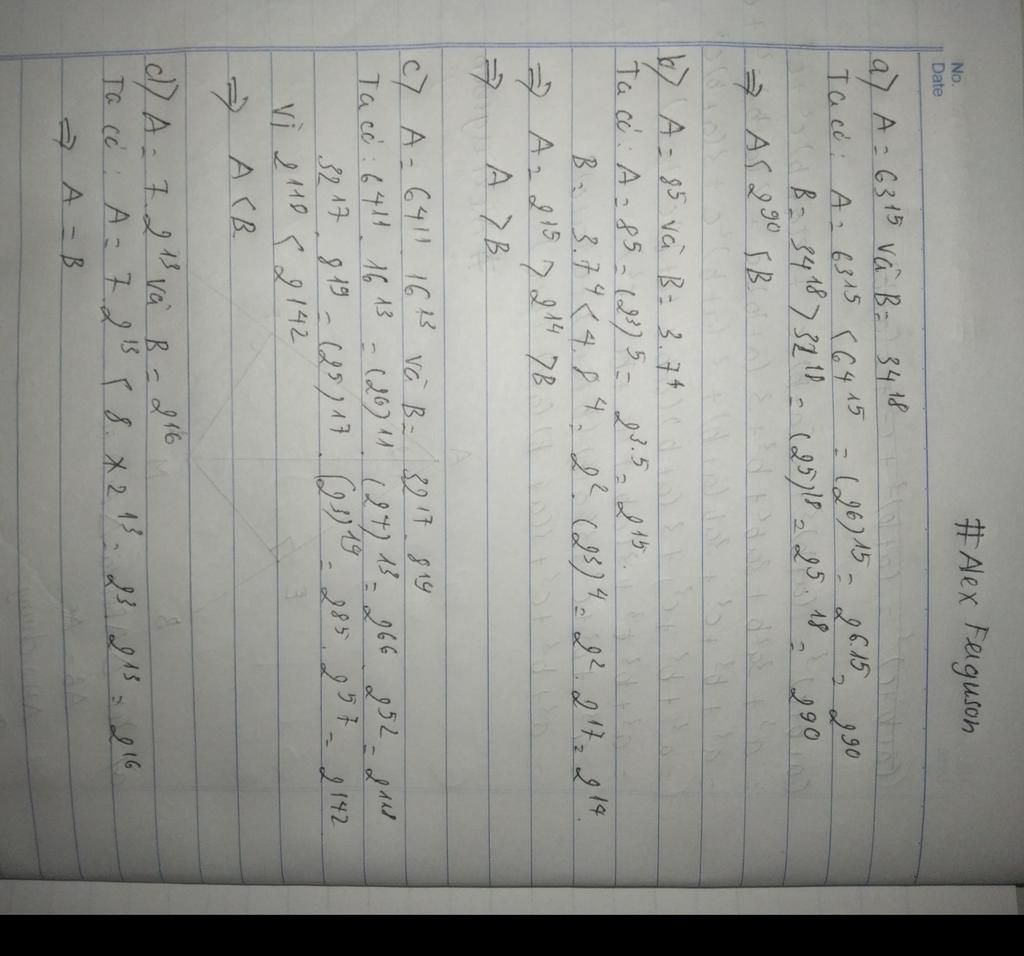 No.
Date
#Alex Ferguson
a) A = 63^15 và B = 34^18
Ta có: A = 63^15 < 64^15 = (2^6)^15 = 2^6.15 = 2^90
B = 34^18 > 32^18 = (2^5)^18 = 2^5.18 = 2^90
⇒ A < 2^90 < B
b) A = 8^5 và B = 3.7^4
Ta có: A = 8^5 = (2^3)^5 = 2^3.5 = 2^15.
B = 3.7^4 < 4.8^4 = 2^2.(2^3)^4 = 2^2.2^17 = 2^14.
⇒ A = 2^15 > 2^14 > B
⇒ A > B
c) A = 64^11 16^13 và B = 32^17.8^19
Ta có: 64^11.16^13 = (2^6)^11.(2^4)^13 = 2^66.2^52 = 2^118
32^17.8^19 = (2^5)^17.(2^3)^19 = 2^85.2^57 = 2^142
Vì 2^118 < 2^142
⇒ A < B
d) A = 7.2^13 và B = 2^16
Ta có: A = 7.2^13 < 8.×2^13 = 2^3.2^13 = 2^16
⇒ A = B